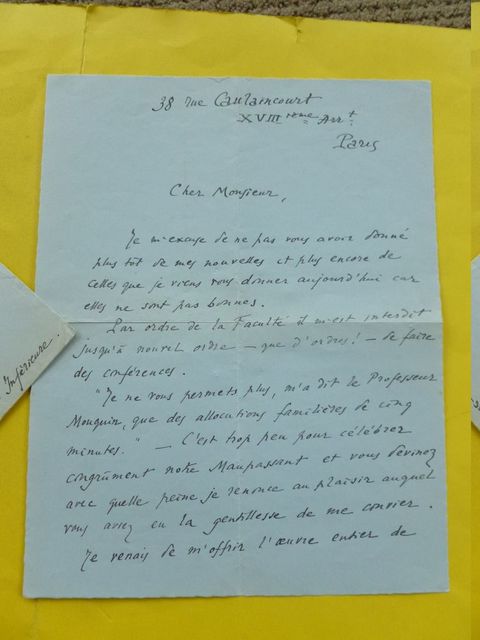 38 rue Caulaincourt
XVIII ème Arrt
Paris
Cher Monsieur,
Je m'excuse de ne pas vous avoir donné
plus tôt de mes nouvelles et plus encore de
celles que je viens vous donner aujourd'hui car
elles ne sont pas bonnes.
Par ordre de la Faculté il m'est interdit
jusqu'à nouvel ordre – que d'ordres! – de faire
des conférences.
"Je ne vous permets plus, m'a dit le Professeur
Mouquin, que des allocutions familières de cinq
minutes." – C'est trop peu pour célébrer
congrûment notre Maupassant et vous devinez
avec quelle peine je renonce au plaisir auquel
vous aviez eu la gentillesse de me convier.
Je venais de m'offrir l'œuvre entier de
Inférieure.